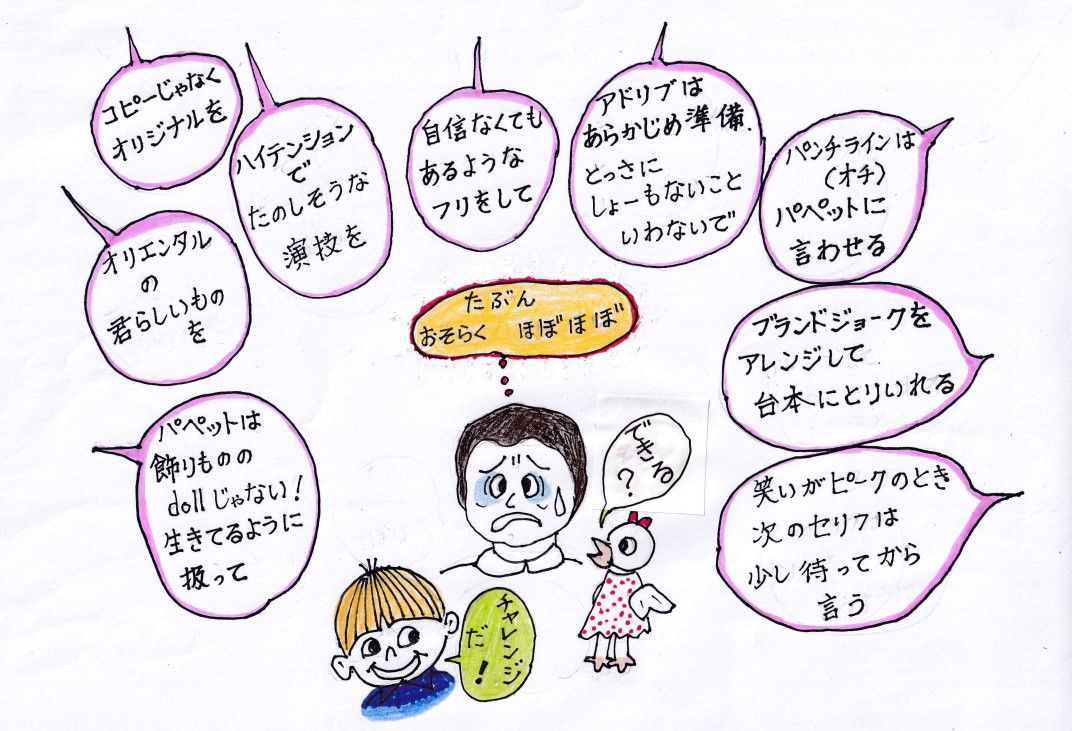 コピーじゃなく
オリジナルを
ハイテンション
で
たのしそうな
演技を
自信なくても
あるような
フリをして
アドリブは
あらかじめ準備.
とっさに
しょーもないこと
いわないで
パンチラインは
(オチ)
パペットに
言わせる
オリエンタル
の
君らしいもの
を
たぶん
おそらく ほぼほぼ
ブランドジョークを
アレンジして
台本にとりいれる
パペットは
飾りものの
dollじゃない!
生きてるように
扱って
できる
?
笑いがピークのとき
次のセリフは
少し待ってから
言う
チャレンジ
だ!